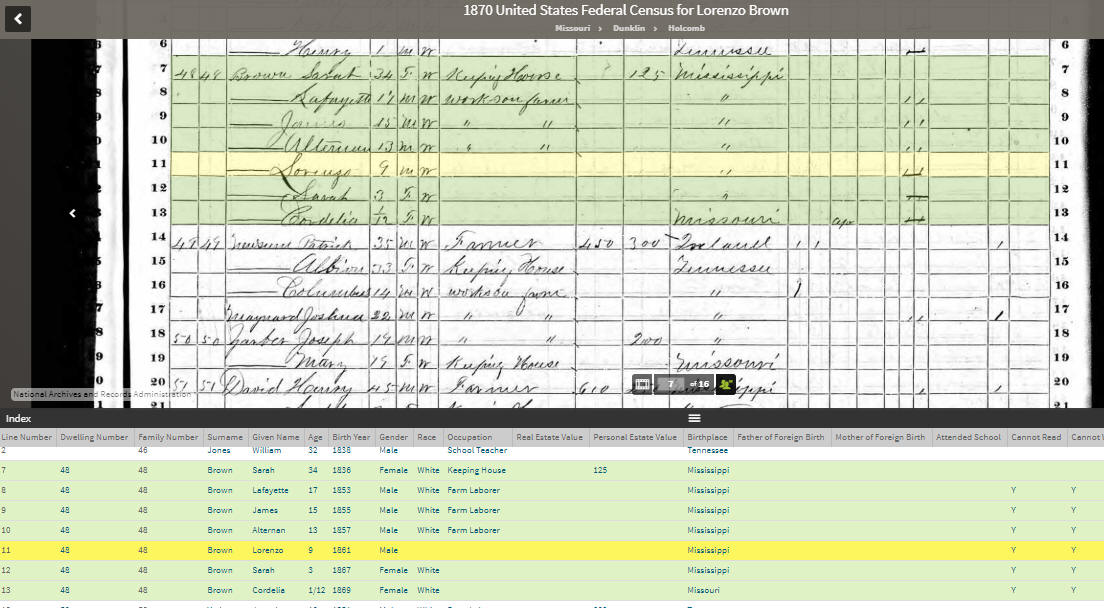 1870 United States Federal Census for Lorenzo Brown
Missouri > Dunklin > Holcomb
6 Henry 1 m W Tennessee 6
7 48 48 Brown Sarah 34 F W Keeping House 125 Mississippi 7
8 Lafayette 17 m W works on farm " 8
9 James 15 m W " " " 9
10 Alternan 13 m W " " " 10
11 Lorenzo 9 m W " 11
12 Sarah 3 F W " 12
13 Cordelia 1/12 F W Missouri apr 13
14 49 49 Patrick 35 m W Farmer 450 300 Ireland 1 1 14
15 Albion 33 F W Keeping House Tennessee 15
16 Columbus 14 m W works on farm " 16
17 Maynard Joshua 22 m W " " " 17
18 50 50 Garber Joseph 19 m W " " 200 " 18
19 Mary 19 F W Keeping House Missouri 19
20 51 51 David Henry 45 m W Farmer 610 20
21 21
7 of 16
National Archives and Records Administration
Index
Line Number Dwelling Number Family Number Surname Given Name Age Birth Year Gender Race Occupation Real Estate Value Personal Estate Value Birthplace Father of Foreign Birth Mother of Foreign Birth Attended School Cannot Read Cannot
2 46 Jones William 32 1838 Male School Teacher Tennessee
7 48 48 Brown Sarah 34 1836 Female White Keeping House 125 Mississippi
8 48 48 Brown Lafayette 17 1853 Male White Farm Laborer Mississippi Y Y
9 48 48 Brown James 15 1855 Male White Farm Laborer Mississippi Y Y
10 48 48 Brown Alternan 13 1857 Male White Farm Laborer Mississippi Y Y
11 48 48 Brown Lorenzo 9 1861 Male Mississippi Y Y
12 48 48 Brown Sarah 3 1867 Female White Mississippi Y Y
13 48 48 Brown Cordelia 1/12 1869 Female White Missouri Y Y